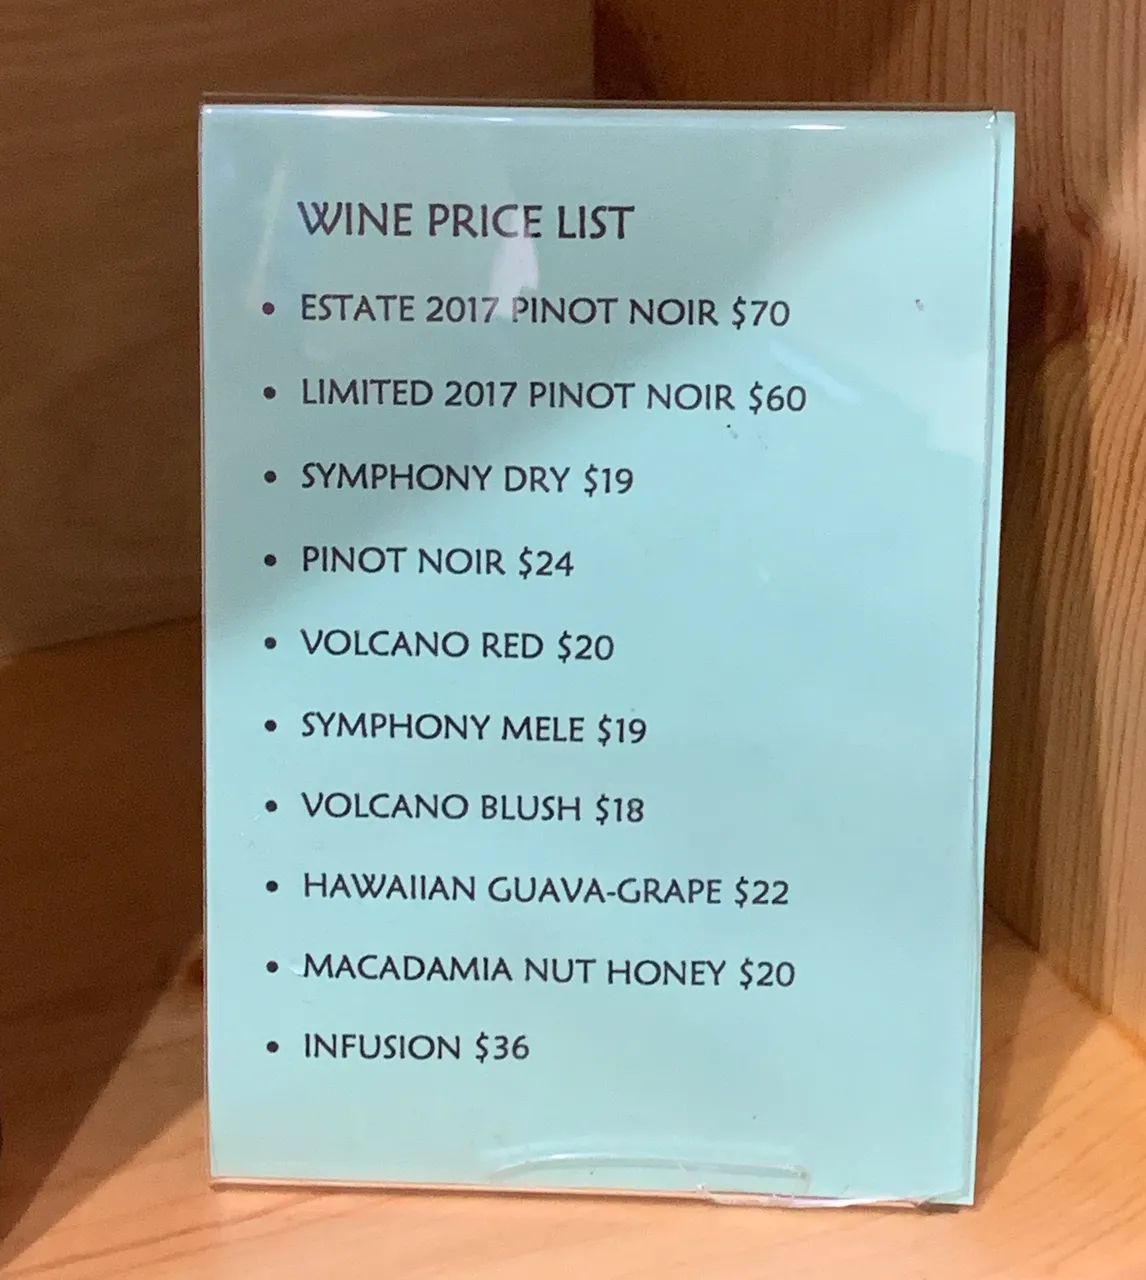 WINE PRICE LIST
• ESTATE 2017 PINOT NOIR $70
• LIMITED 2017 PINOT NOIR $60
• SYMPHONY DRY $19
• PINOT NOIR $24
• VOLCANO RED $20
• SYMPHONY MELE $19
• VOLCANO BLUSH $18
• HAWAIIAN GUAVA-GRAPE $22
• MACADAMIA NUT HONEY $20
• INFUSION $36